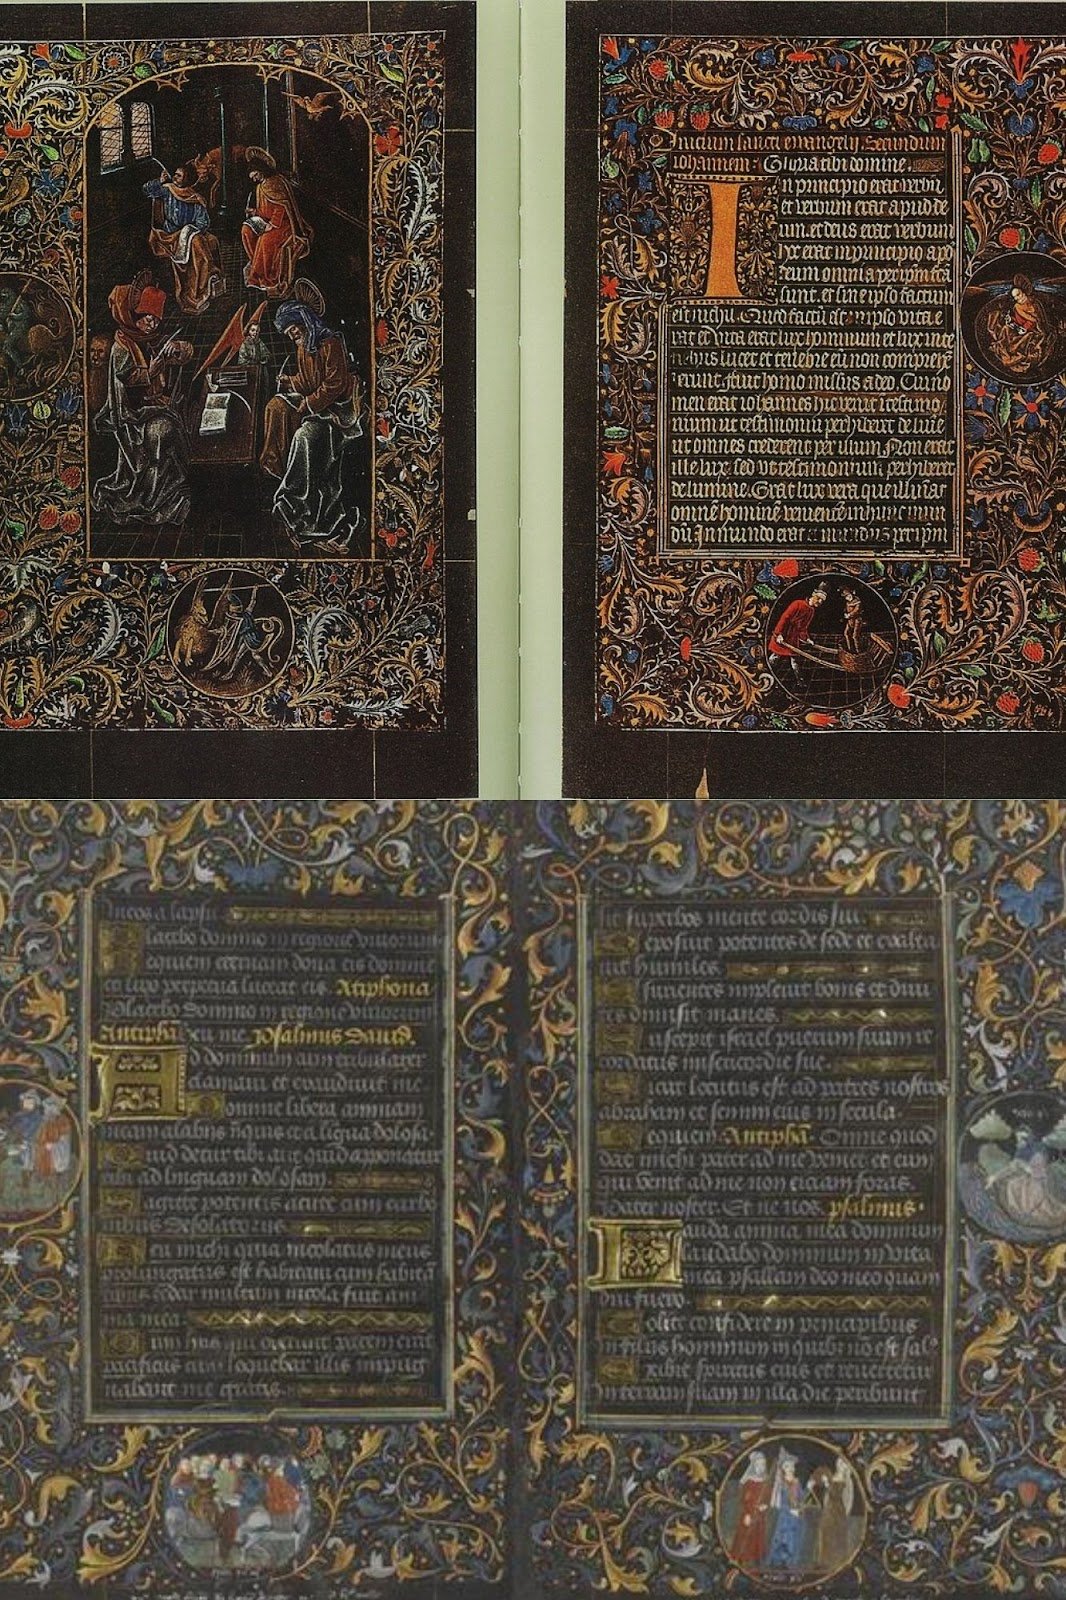 Inicium sancti evangelÿ. Secundum
iohannem: Gloria tibi domine.
In principio erat verbū
et verbum erat apud de
um. et deus erat verbum
hoc erat in principio apo
deum omnia per ipm̄ fc̄a
sunt. et sine ipso factum
est nichil. Quod factū est in ipso vita e
rat et vita erat lux hominum et lux in te
nebris lucet et tenebre eū non compreh̄
erunt. fuit homo missus a deo. Cui no
men erat iohannes hic venit ī testimo/
nium ut testimoniū perhiberet de lumē
ut omnes crederent per illum. Non erat
ille lux. sed vt testimonium perhiberet
de lumine. Erat lux vera que illuīat
omnē hominē venientē in hunc mun
dū. In mundo erat et mundus per ipm̄
meos a lapsu
Placebo domino in regione vivorum
Requiem eternam dona eis domine
et lux perpetua luceat eis. Antiphona
Placebo domino in regione vivorum
Antiphā heu me Psalmus David.
Ad dominum cum tribularer
clamavi et exaudivit me
Domine libera animam
meam a labijs
Quid detur tibi aut quid apponatur
tibi ad linguam dolosam.
Sagitte potentis acute cum carbo
nibus desolatorijs
Heu michi quia incolatus meus
prolongatus est habitavi cum habitā
multum incola fuit ani
ma mea
Cum his qui oderunt pacem eram
pacificus cum loquebar illis impug
nabant me gratis.
sit superbos mente cordis sui
Deposuit potentes de sede et exalta
vit humiles.
Esurientes implevit bonis et divi
tes dimisit inanes.
Suscepit israel puerum suum re
cordatus misericordie sue.
Sicut locutus est ad patres nostros
abraham et semini eius in secula
Requiem Antiphā. Omne quod
dat michi pater ad me veniet et eum
qui venit ad me non eiciam foras.
Pater noster. Et ne nos. psalmus.
Lauda anima mea dominum
laudabo dominum in vita
mea psallam deo meo quam
diu fuero.
Nolite confidere in principibus
in filiis hominum in quibus nō est sal
Exibit spiritus eius et revertetur
in terram suam in illa die peribunt